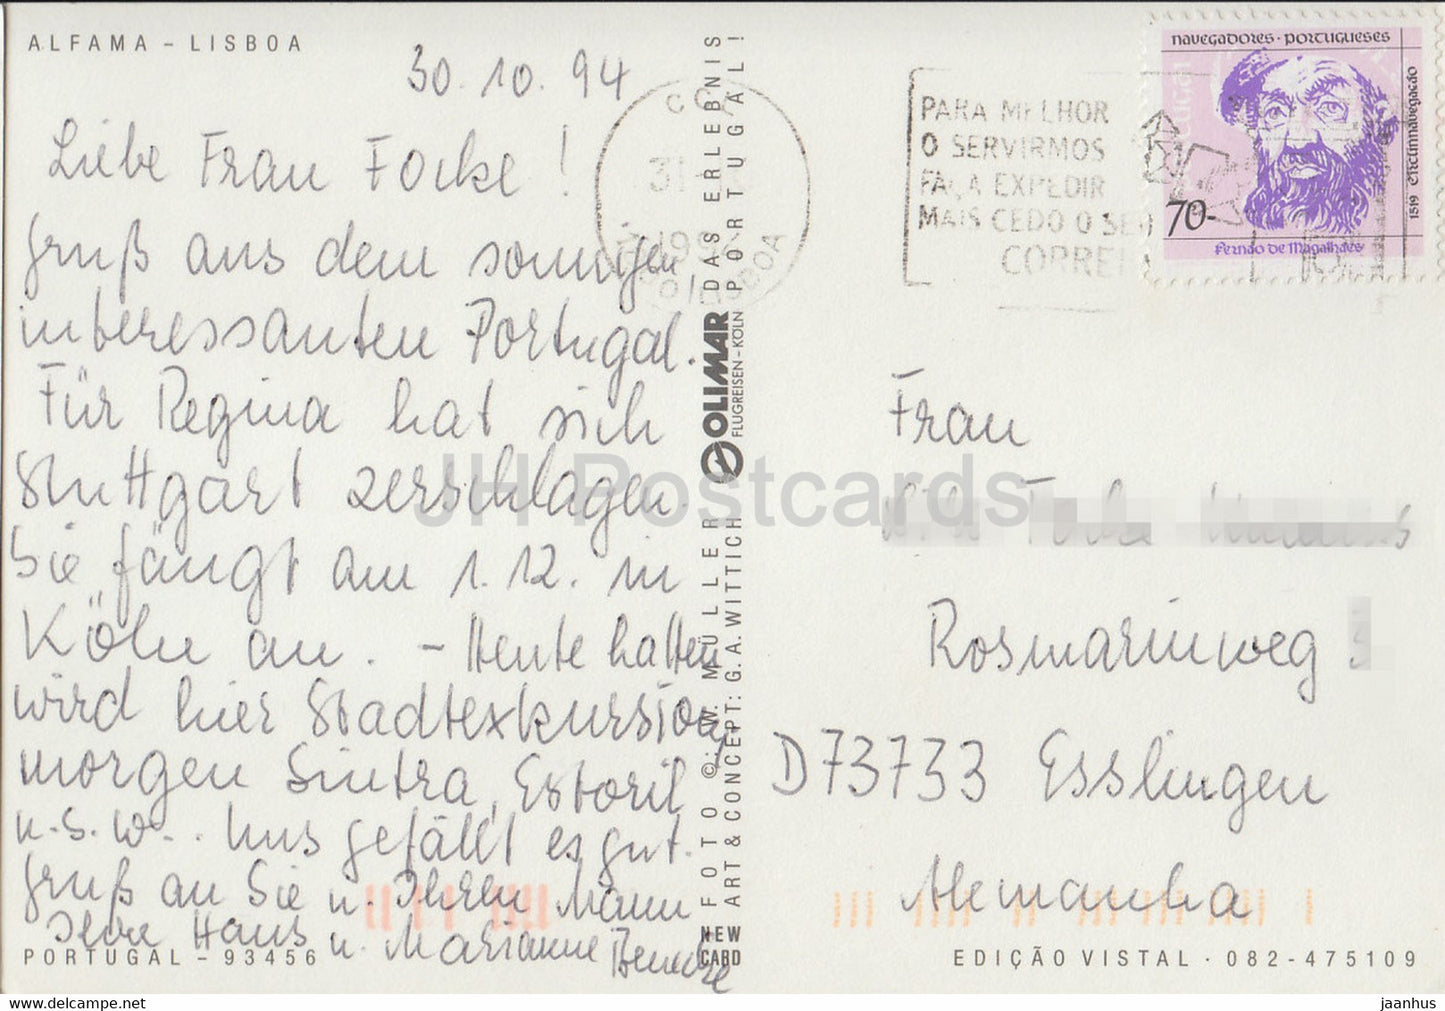 ALFAMA - LISBOA
30.10.94
Liebe Frau Focke!
Gruß aus dem sonnigen,
interessanten Portugal.
Für Regina hat sich
Stuttgart zerschlagen.
Sie fängt am 1.12. in
Köln an. - Heute hatten
wird hier Stadtexkursion,
morgen Sintra, Estoril
u.s.w... Uns gefällt es gut.
Gruß an Sie u. Ihren Mann
Ihre Haus u. Marianne
PORTUGAL - 93456
DAS ERLEBNIS
PORTUGAL!
OLIMAR
FLUGREISEN-KÖLN
FOTO ©: W. MÜLLER
ART & CONCEPT: G.A. WITTICH
NEW
CARD
CCP
31
LISBOA
PARA MELHOR
O SERVIRMOS
FAÇA EXPEDIR
MAIS CEDO O SEU
CORREIO
navegadores · portugueses
1519 Circunnavegação
70-
Fernão de Magalhães
Frau
Focke
Rosmarinweg
D 73733 Esslingen
Alemanha
EDIÇÃO VISTAL · 082-475109
JH Postcards
www.delcampe.net
jaanhus